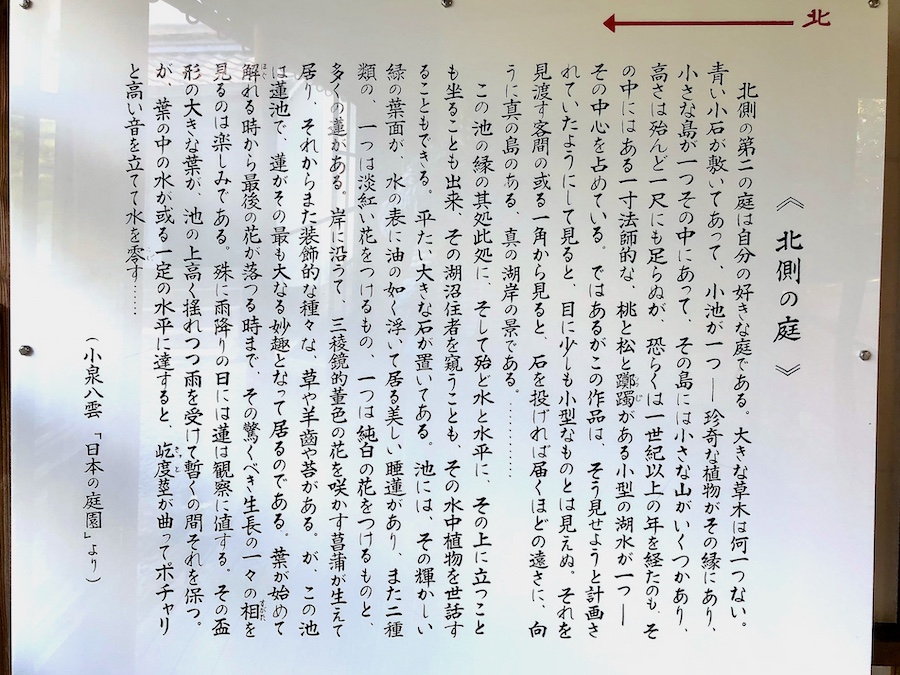 北
《 北側の庭 》
北側の第二の庭は自分の好きな庭である。大きな草木は何一つない。
青い小石が敷いてあって、小池が一つ ── 珍奇な植物がその縁にあり、
小さな島が一つその中にあって、その島には小さな山がいくつかあり、
高さは殆んど一尺にも足らぬが、恐らくは一世紀以上の年を経たのも、そ
の中にはある一寸法師的な、桃と松と躑躅がある小型の湖水が一つ ──
その中心を占めている。ではあるがこの作品は、そう見せようと計画さ
れていたようにして見ると、目に少しも小型なものとは見えぬ。それを
見渡す客間の或る一角から見ると、石を投げれば届くほどの遠さに、向
うに真の島のある、真の湖岸の景である。………
この池の縁の其処此処に、そして殆ど水と水平に、その上に立つこと
も坐ることも出来、その湖沼住者を窺うことも、その水中植物を世話す
ることもできる、平たい大きな石が置いてある。池には、その輝かしい
緑の葉面が、水の表に油の如く浮いて居る美しい睡蓮があり、また二種
類の、一つは淡紅い花をつけるもの、一つは純白の花をつけるものと、
多くの蓮がある。岸に沿うて、三稜鏡的菫色の花を咲かす菖蒲が生えて
居り、それからまた装飾的な種々な、草や羊歯や苔がある。が、この池
は蓮池で、蓮がその最も大なる妙趣となって居るのである。葉が始めて
解れる時から最後の花が落つる時まで、その驚くべき生長の一々の相を
見るのは楽しみである。殊に雨降りの日には蓮は観察に値する。その盃
形の大きな葉が、池の上高く揺れつつ雨を受けて暫くの間それを保つ。
が、葉の中の水が或る一定の水平に達すると、屹度莖が曲ってポチャリ
と高い音を立てて水を零す……
（小泉八雲「日本の庭園」より）